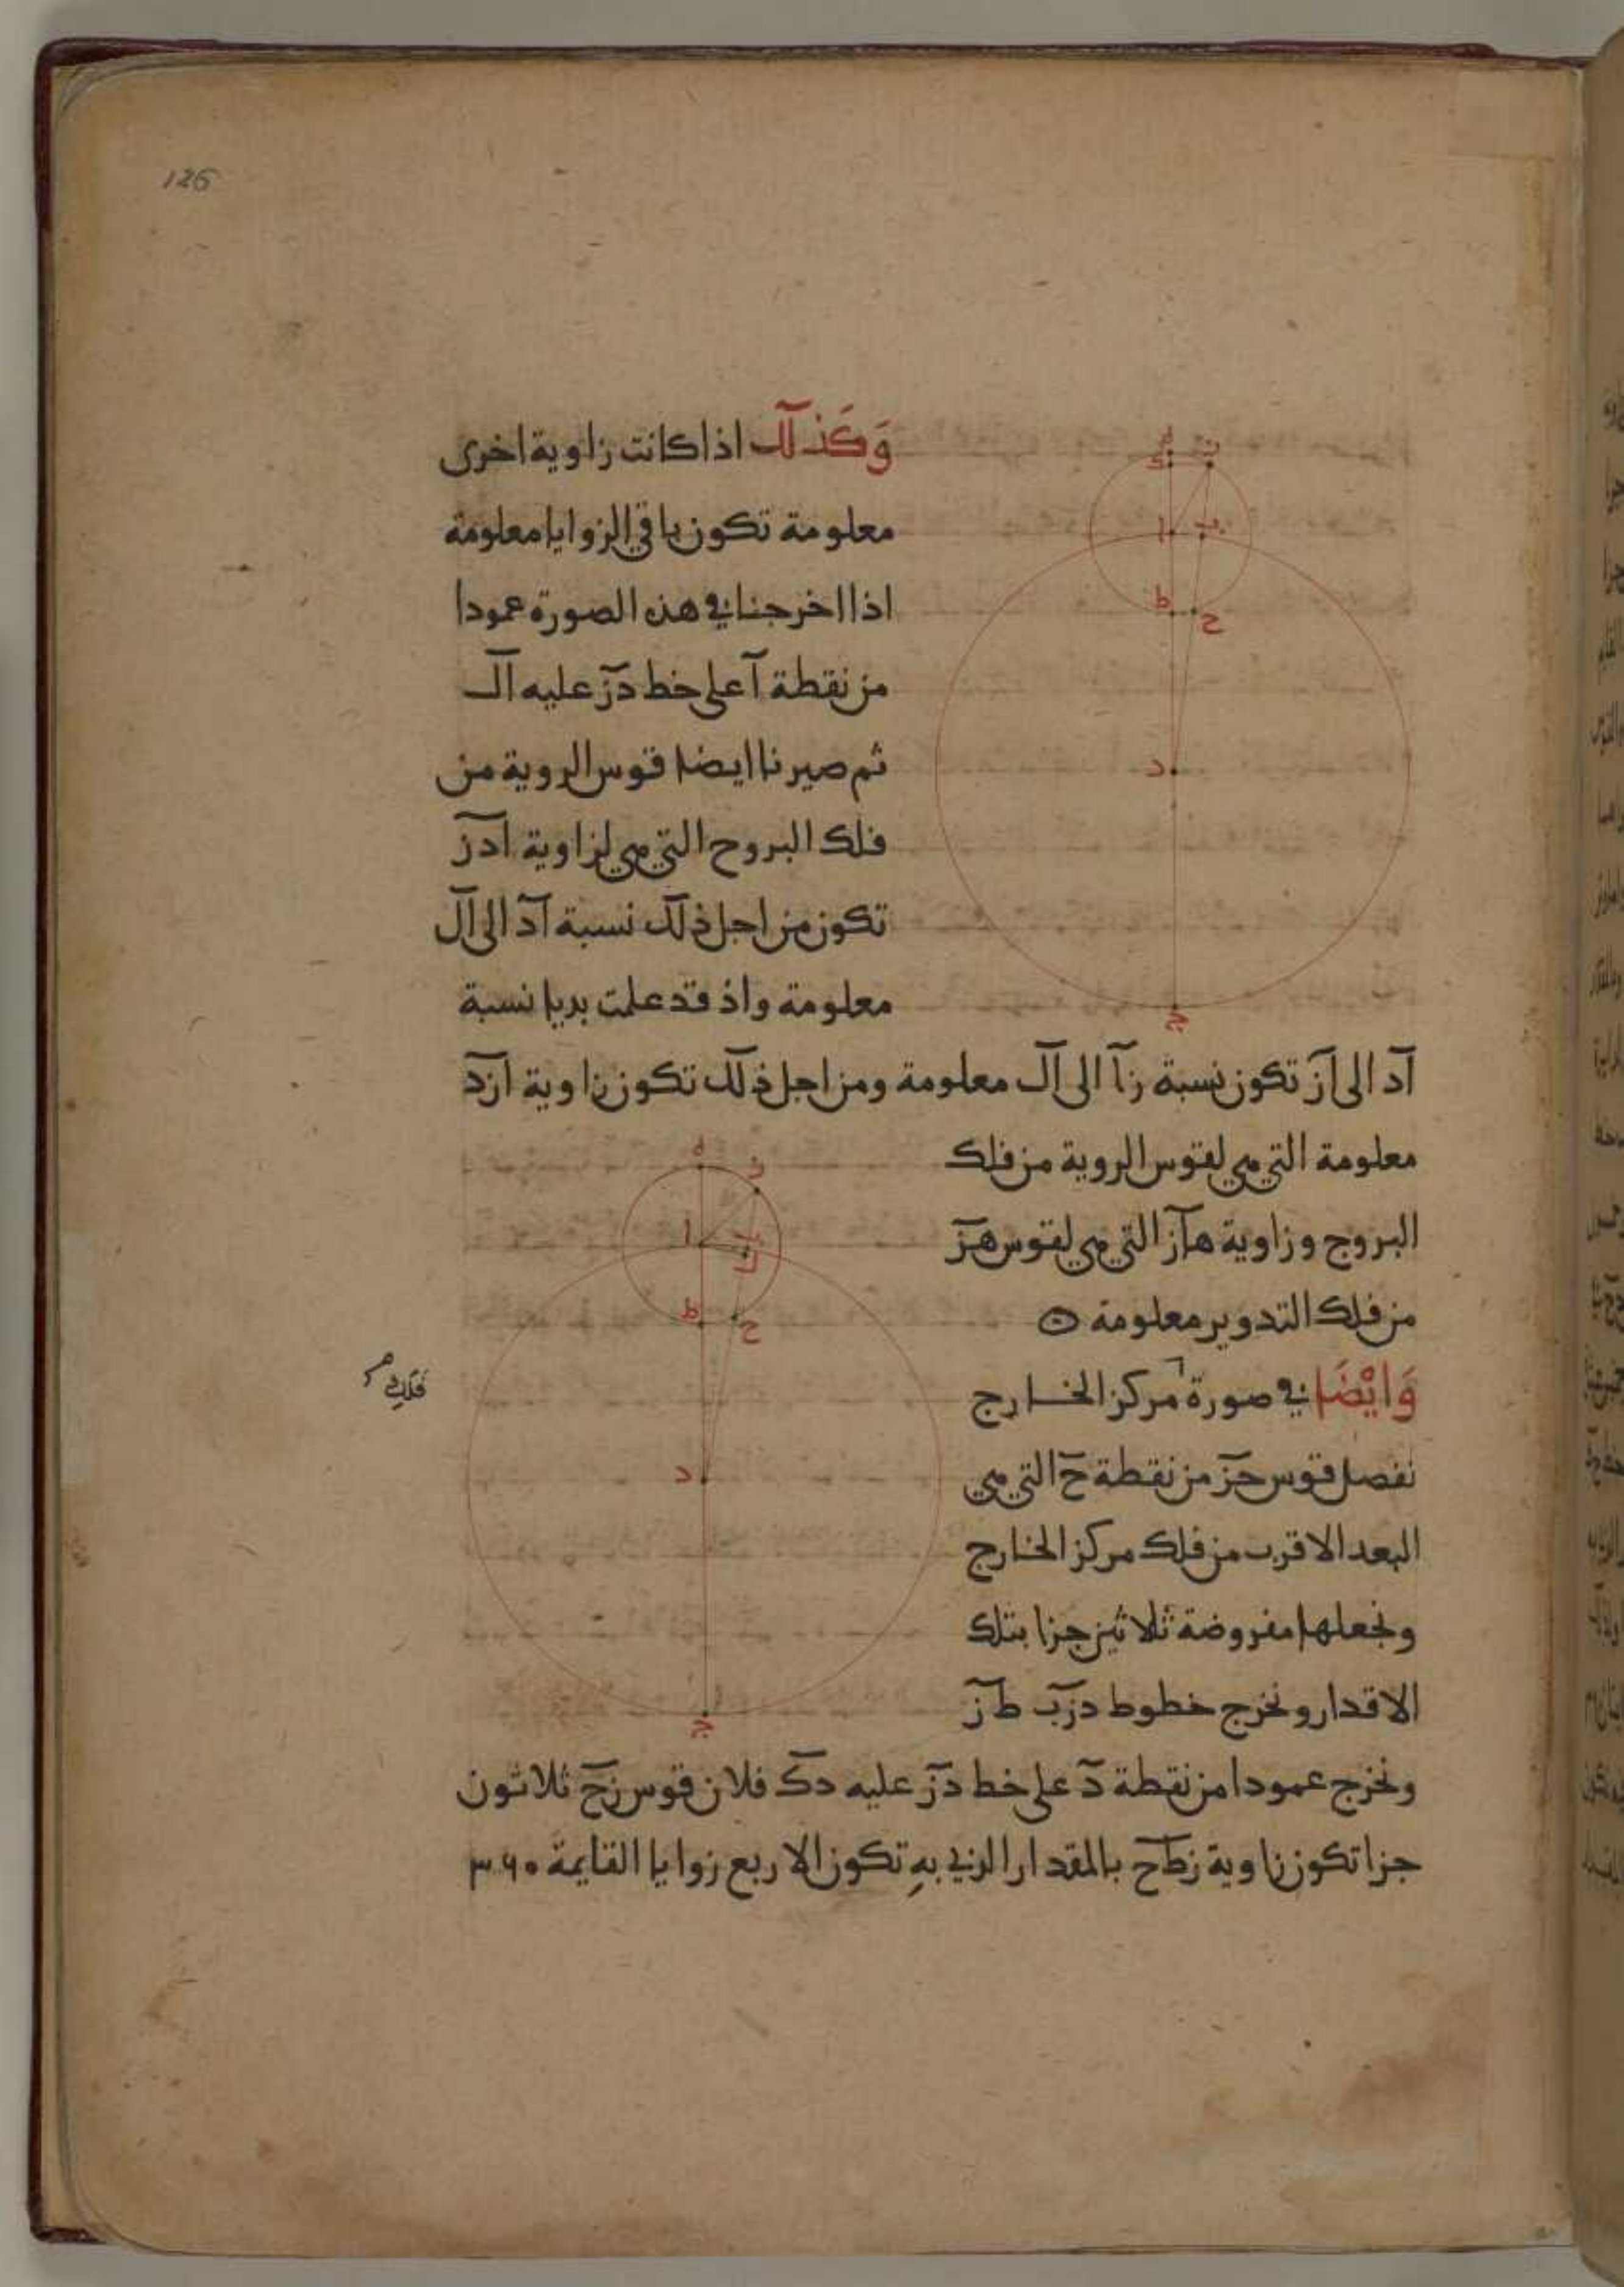 126
وَكَذلك اذا كانت زاوية اخرى
معلومة تكون باقي الزوايا معلومة
اذا اخرجنا في هذه الصورة عمودا
من نقطة آ على خط دز عليه آل
ثم صيرنا ايضا قوس الروية من
فلك البروح التي هي لزاوية ادز
تكون من اجل ذلك نسبة آد الى آل
معلومة واذ قد علمت بديا نسبة
آد الى آز تكون نسبة زآ الى آل معلومة ومن اجل ذلك تكون زاوية ازد
معلومة التي هي لقوس الروية من فلك
البروج وزاوية هآز التي هي لقوس هز
من فلك التدوير معلومة ه
وَايْضَا في صورة مركز الخارج
فلك
نفصل قوس حز من نقطة ح التي هي
البعد الاقرب من فلك مركز الخارج
ونجعلها مفروضة ثلاثين جزا بتلك
الاقدار ونخرج خطوط دزب طز
ونخرج عمودا من نقطة د على خط دز عليه دك فلان قوس زح ثلاثون
جزا تكون زاوية زطح بالمقدار الذي بهِ تكون الاربع زوايا القايمة ٣٦٠
ه
ز
ك
ا
ب
ط
ح
د
ج
ه
ز
ا
ب
ل
ط
ح
د
ج